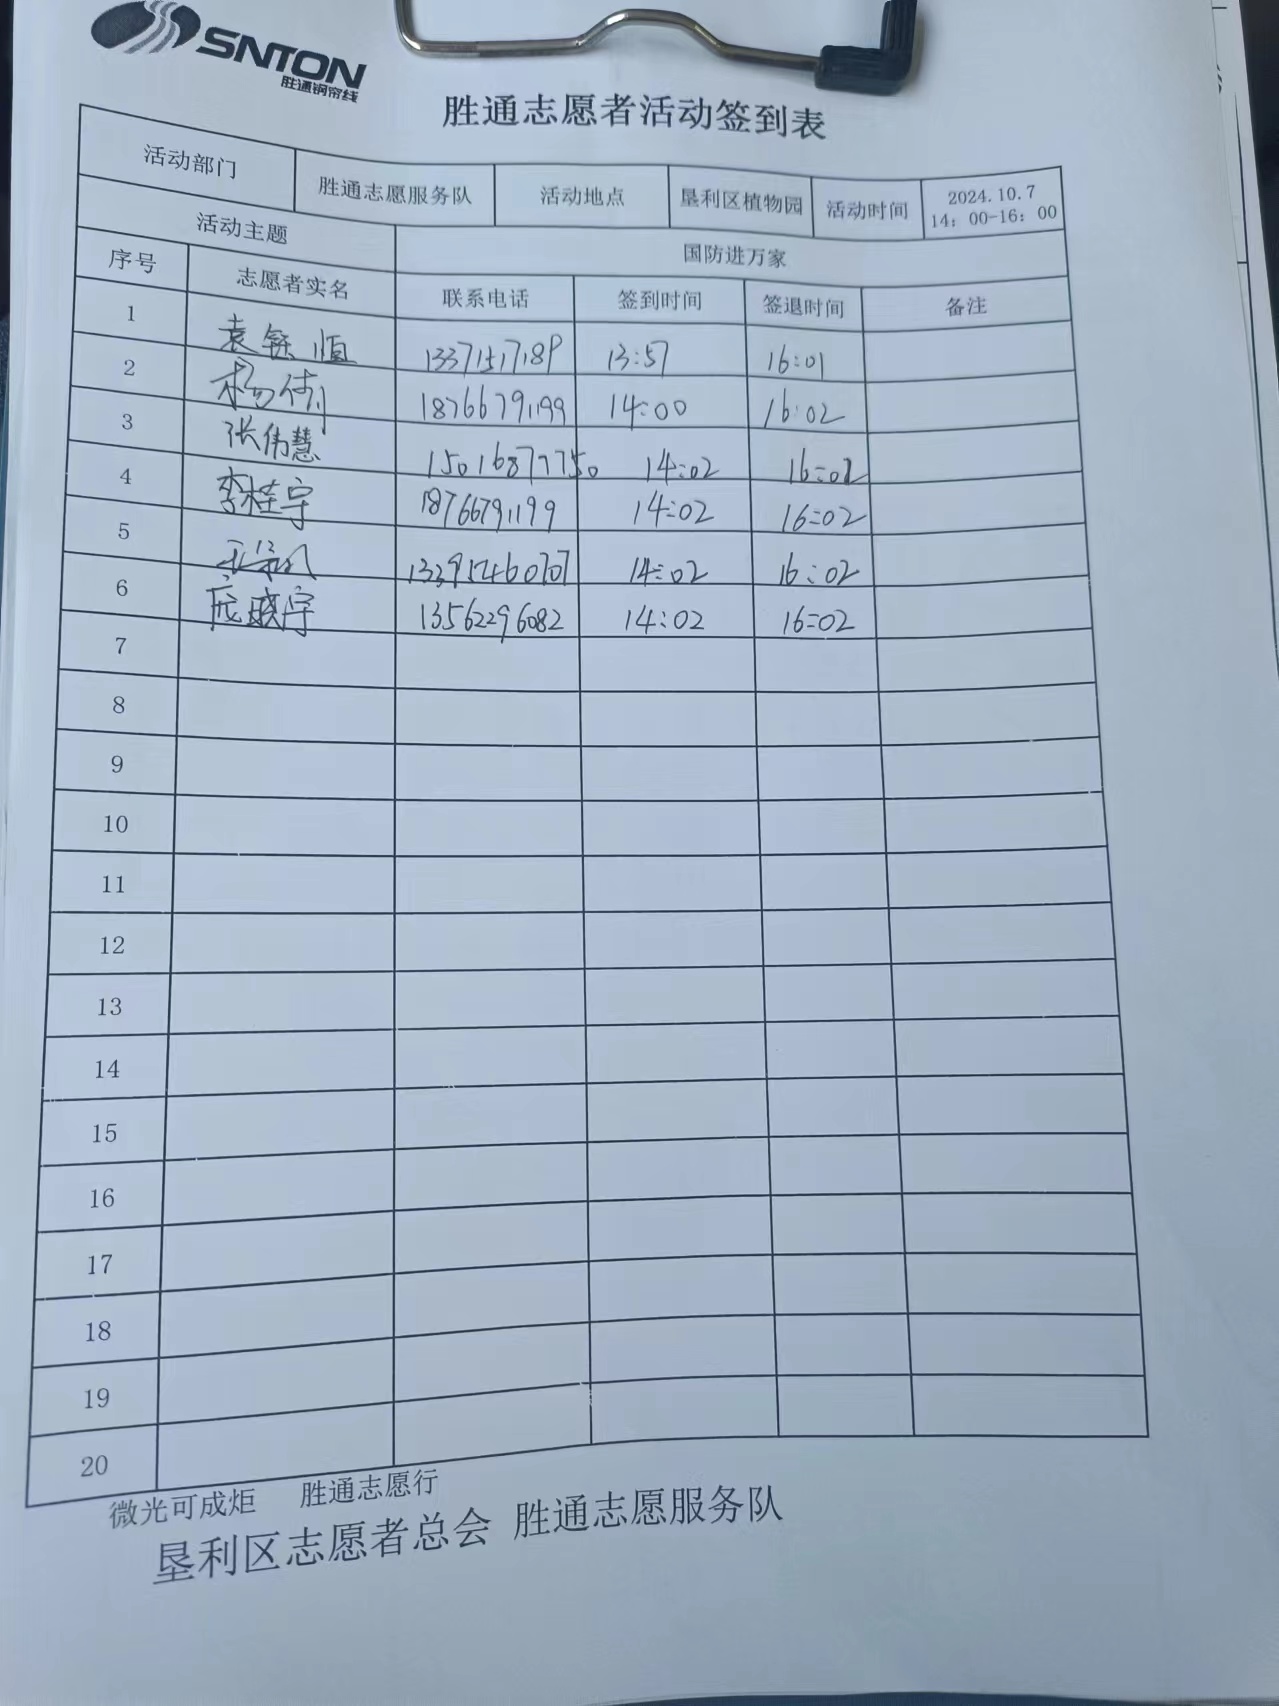 SNTON
胜通钢帘线
胜通志愿者活动签到表
活动部门 胜通志愿服务队 活动地点 垦利区植物园 活动时间 2024.10.7 14：00-16：00
活动主题 国防进万家
序号 志愿者实名 联系电话 签到时间 签退时间 备注
1 袁 恒 13371517189 13:57 16:01
2 杨倩 18766791199 14:00 16:02
3 张伟慧 15016877750 14:02 16:02
4 李桂宇 18766791199 14:02 16:02
5 14:02 16:02
6 庞晓宇 13562296082 14:02 16:02
7
8
9
10
11
12
13
14
15
16
17
18
19
20
微光可成炬 胜通志愿行
垦利区志愿者总会 胜通志愿服务队